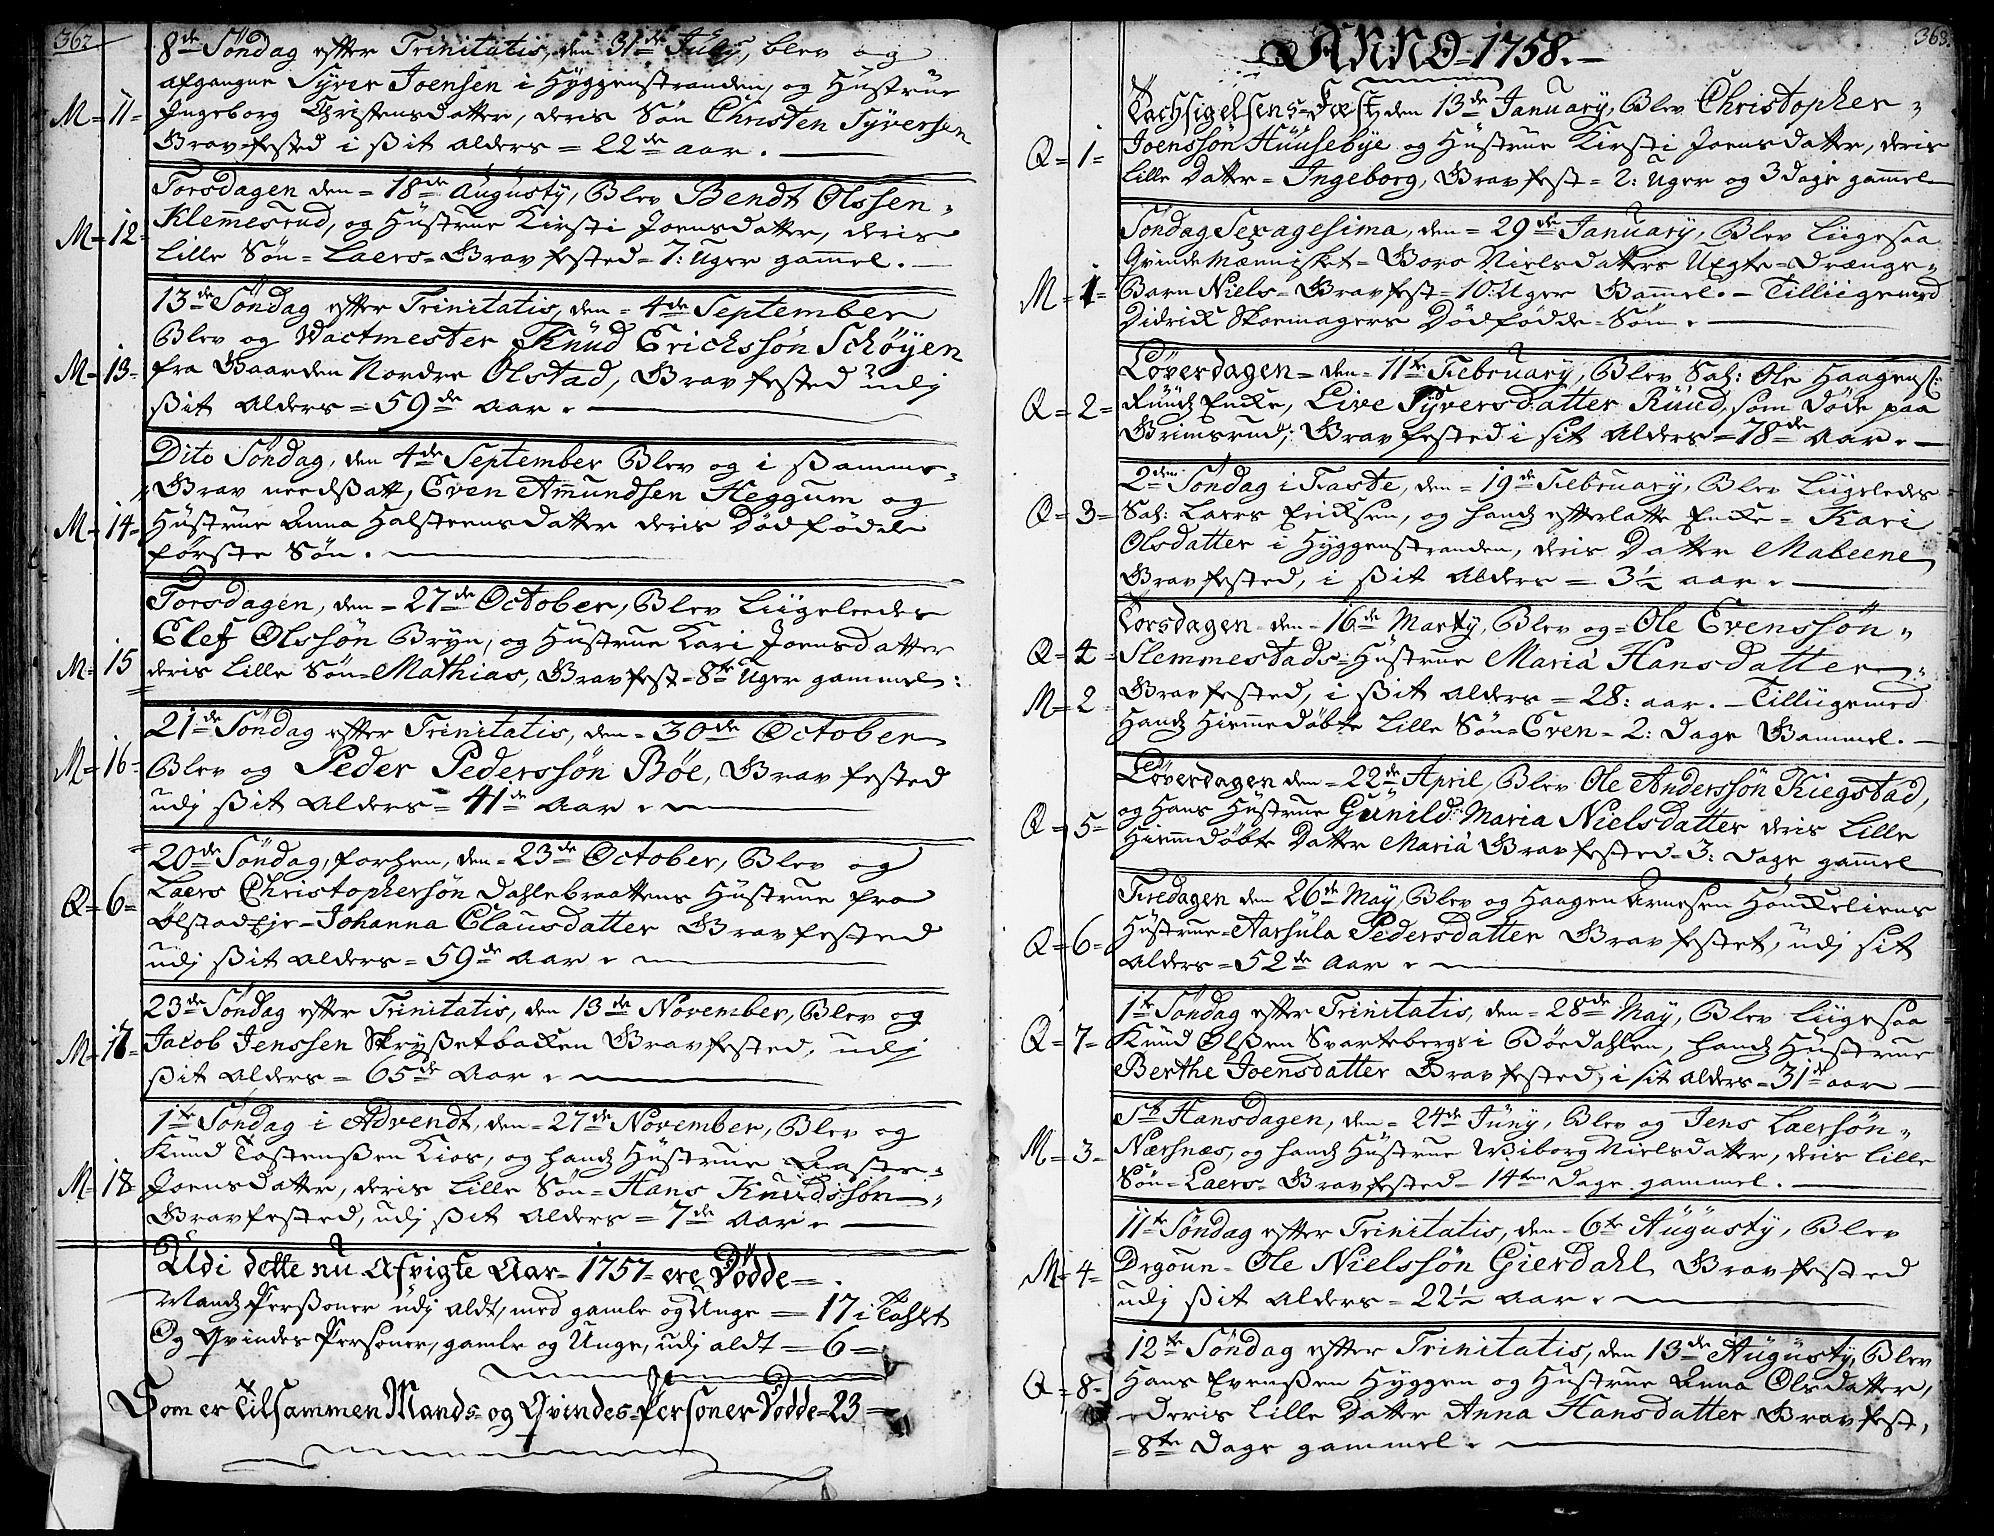 362
8de Söndag efter Trinitatis, den 31de July, blev og
afgangne Syver Joensen i Hyggenstranden, og Hustrue
M=11= Ingeborg Christensdatter, deris Søn Christen Syversen
Gravfested i ßit Alders = 22de aar.
Torsdagen den = 18de Augusty, Blev Bendt Olssen =
Klemmesrud, og Hustrue Kirsti Joensdatter, deris
M=12= Lille Søn = Laers = Gravfested = 7: Uger gammel.
13de Söndag efter Trinitatis, den = 4de September
Blev og Wactmester Knud Erickssön Schöyen
M=13= fra Gaarden Nordre Ölstad, Gravfested udj
ßit Alders = 59de Aar.
Dito Söndag, den 4de September Blev og i ßamme =
Grav needßatt, Even Amundsen Heggum og
M=14= Hustrue Anna Halsteensdatter deris Dödfödde
förste Søn.
Torsdagen, den = 27de October, Blev Liigeleedes
Elef Olssön Bryn, og Hustrue Kari Joensdatter
M=15 deris Lille Søn = Mathias, Gravfest = 8te Uger gammel:
21de Söndag efter Trinitatis, den = 30de October
M=16= Blev og Peder Pederssön Böe, Gravfested
udj ßit Alders = 41de Aar.
20de Söndag, forhen, den = 23de October, Blev og
Laers Christophersön Dahlebraattens Hustrue fra
Q=6= Ölstad Eje = Johanna Clausdatter Gravfested
udj ßit Alders = 59de Aar.
23de Söndag efter Trinitatis, den 13de November, Blev og
M=17= Jacob Jenssen Skryßetbacken Gravfested, udj
ßit Alders = 65de Aar.
1te Söndag i Advendt, den = 27de November, Blev og
Knud Tostenßen Kios, og hands Hustrue Aaste =
M=18 Joensdatter, deris Lille Søn = Hans Knudssön
Gravfested, udj ßit Alders = 7de Aar.
Udi dette nu Afvigte Aar = 1757 = ere Dödde =
Mands Perßoner udj aldt, med gamle og Unge = 17 i Tallet
Og Qvindes Personer, gamle og Unge, udj aldt = 6 =
Som er Tilsammen Mands = og Qvindes = Personer Dödde = 23 =
363.
ANNO = 1758.
Tachsigelsens = Fæst, den 13de January, Blev Christopher =
Q=1= Joenssön Huusebye og Hustrue Kirsti Joensdatter, deris
Lille Datter = Ingeborg, Gravfest = 2: Uger og 3 Dage gammel
Söndag Sexagesima, den = 29de January, Blev Liigesaa
Qvinde Mennisket = Goro Nielsdatters Uægte = Drænge =
M=1= Barn Niels = Gravfest = 10: Uger Gammel. = Tilliigemed
Didrik Skoemagers Dödfödde = Søn.
Löverdagen = den = 11te February, Blev Sal: Ole Haagens:
Q=2= Ruuds Encke, Live Syversdatter Ruud, som Döde paa
Grimsrud, Gravfested i sit Alders = 78de Aar.
2den Söndag i Faste, den = 19de February, Blev Liigeledes
Q=3= Sal: Laers Ericksen, og hands efterlatte Encke = Kari
Olsdatter i Hyggenstranden, deris Datter Mabeene
Gravfested, i ßit Alders = 3½ aar.
Torsdagen den = 16de Marty, Blev og = Ole Evenssön =
Q=4= Slemmestads = Hustrue Maria Hansdatter =
M=2= Gravfested, i ßit Alders = 28: aar. = Tilliigemed
Hands Hiemmedöbte Lille Søn = Even = 2: Dage Gammel.
Löverdagen den = 22de April, Blev Ole Anderssön Kiegstad,
Q=5= og Hans Hustrue Gunild Maria Nielsdatter deris Lille
Hiemmdöbte Datter Maria Gravfested = 3: Dage gammel
Fredagen den 26de May, Blev og Haagen Arnesen Hönckeliens
Q=6= Hustrue = Aarsula Pedersdatter Gravfestet, udj sit
Alders = 52de Aar.
1te Söndag efter Trinitatis, den = 28de May, Blev Liigesaa
Q=7= Knud Ölßen Svartebergs i Böedahlen, hands Hustrue
Berthe Joensdatter Gravfested, i sit Alders = 31de aar
St Hansdagen, den = 24de Juny, Blev og Jens Laersön =
M=3= Nærsnæs, og hands Hustrue Wiborg Nielsdatter, deris Lille
Søn = Laers = Gravfested = 14ten Dage gammel.
11te Söndag efter Trinitatis, den = 6te Augusty, Blev
M=4= Dragoun = Ole Nielssön Gierdahl, Gravfested
udj ßit Alders = 22½ Aar.
12te Söndag efter Trinitatis, den 13de Augusty, Blev
Q=8= Hans Evenßen Hyggen og Hustrue Anna Olsdatter,
deris Lille Datter Anna Hansdatter Gravfest,
= 8te Dage gammel.